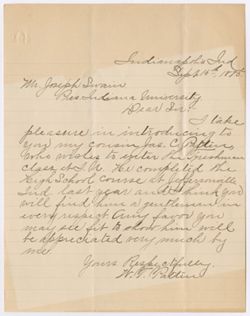 Indianapolis Ind
Sept 16th, 1895
Mr Joseph Swain
Pres Indiana University
Dear Sir:-
I take
pleasure in introducing to
you my cousin Jas. C. Patten
who wishes to enter the Freshman
class, at I. U. He completed the
High School Course at Jeffersonville
Ind last year and I think you
will find him a gentleman in
every respect. Any favor you
may see fit to show him will
be appreciated very much by
me
Yours Respectfully
W. T. Patten